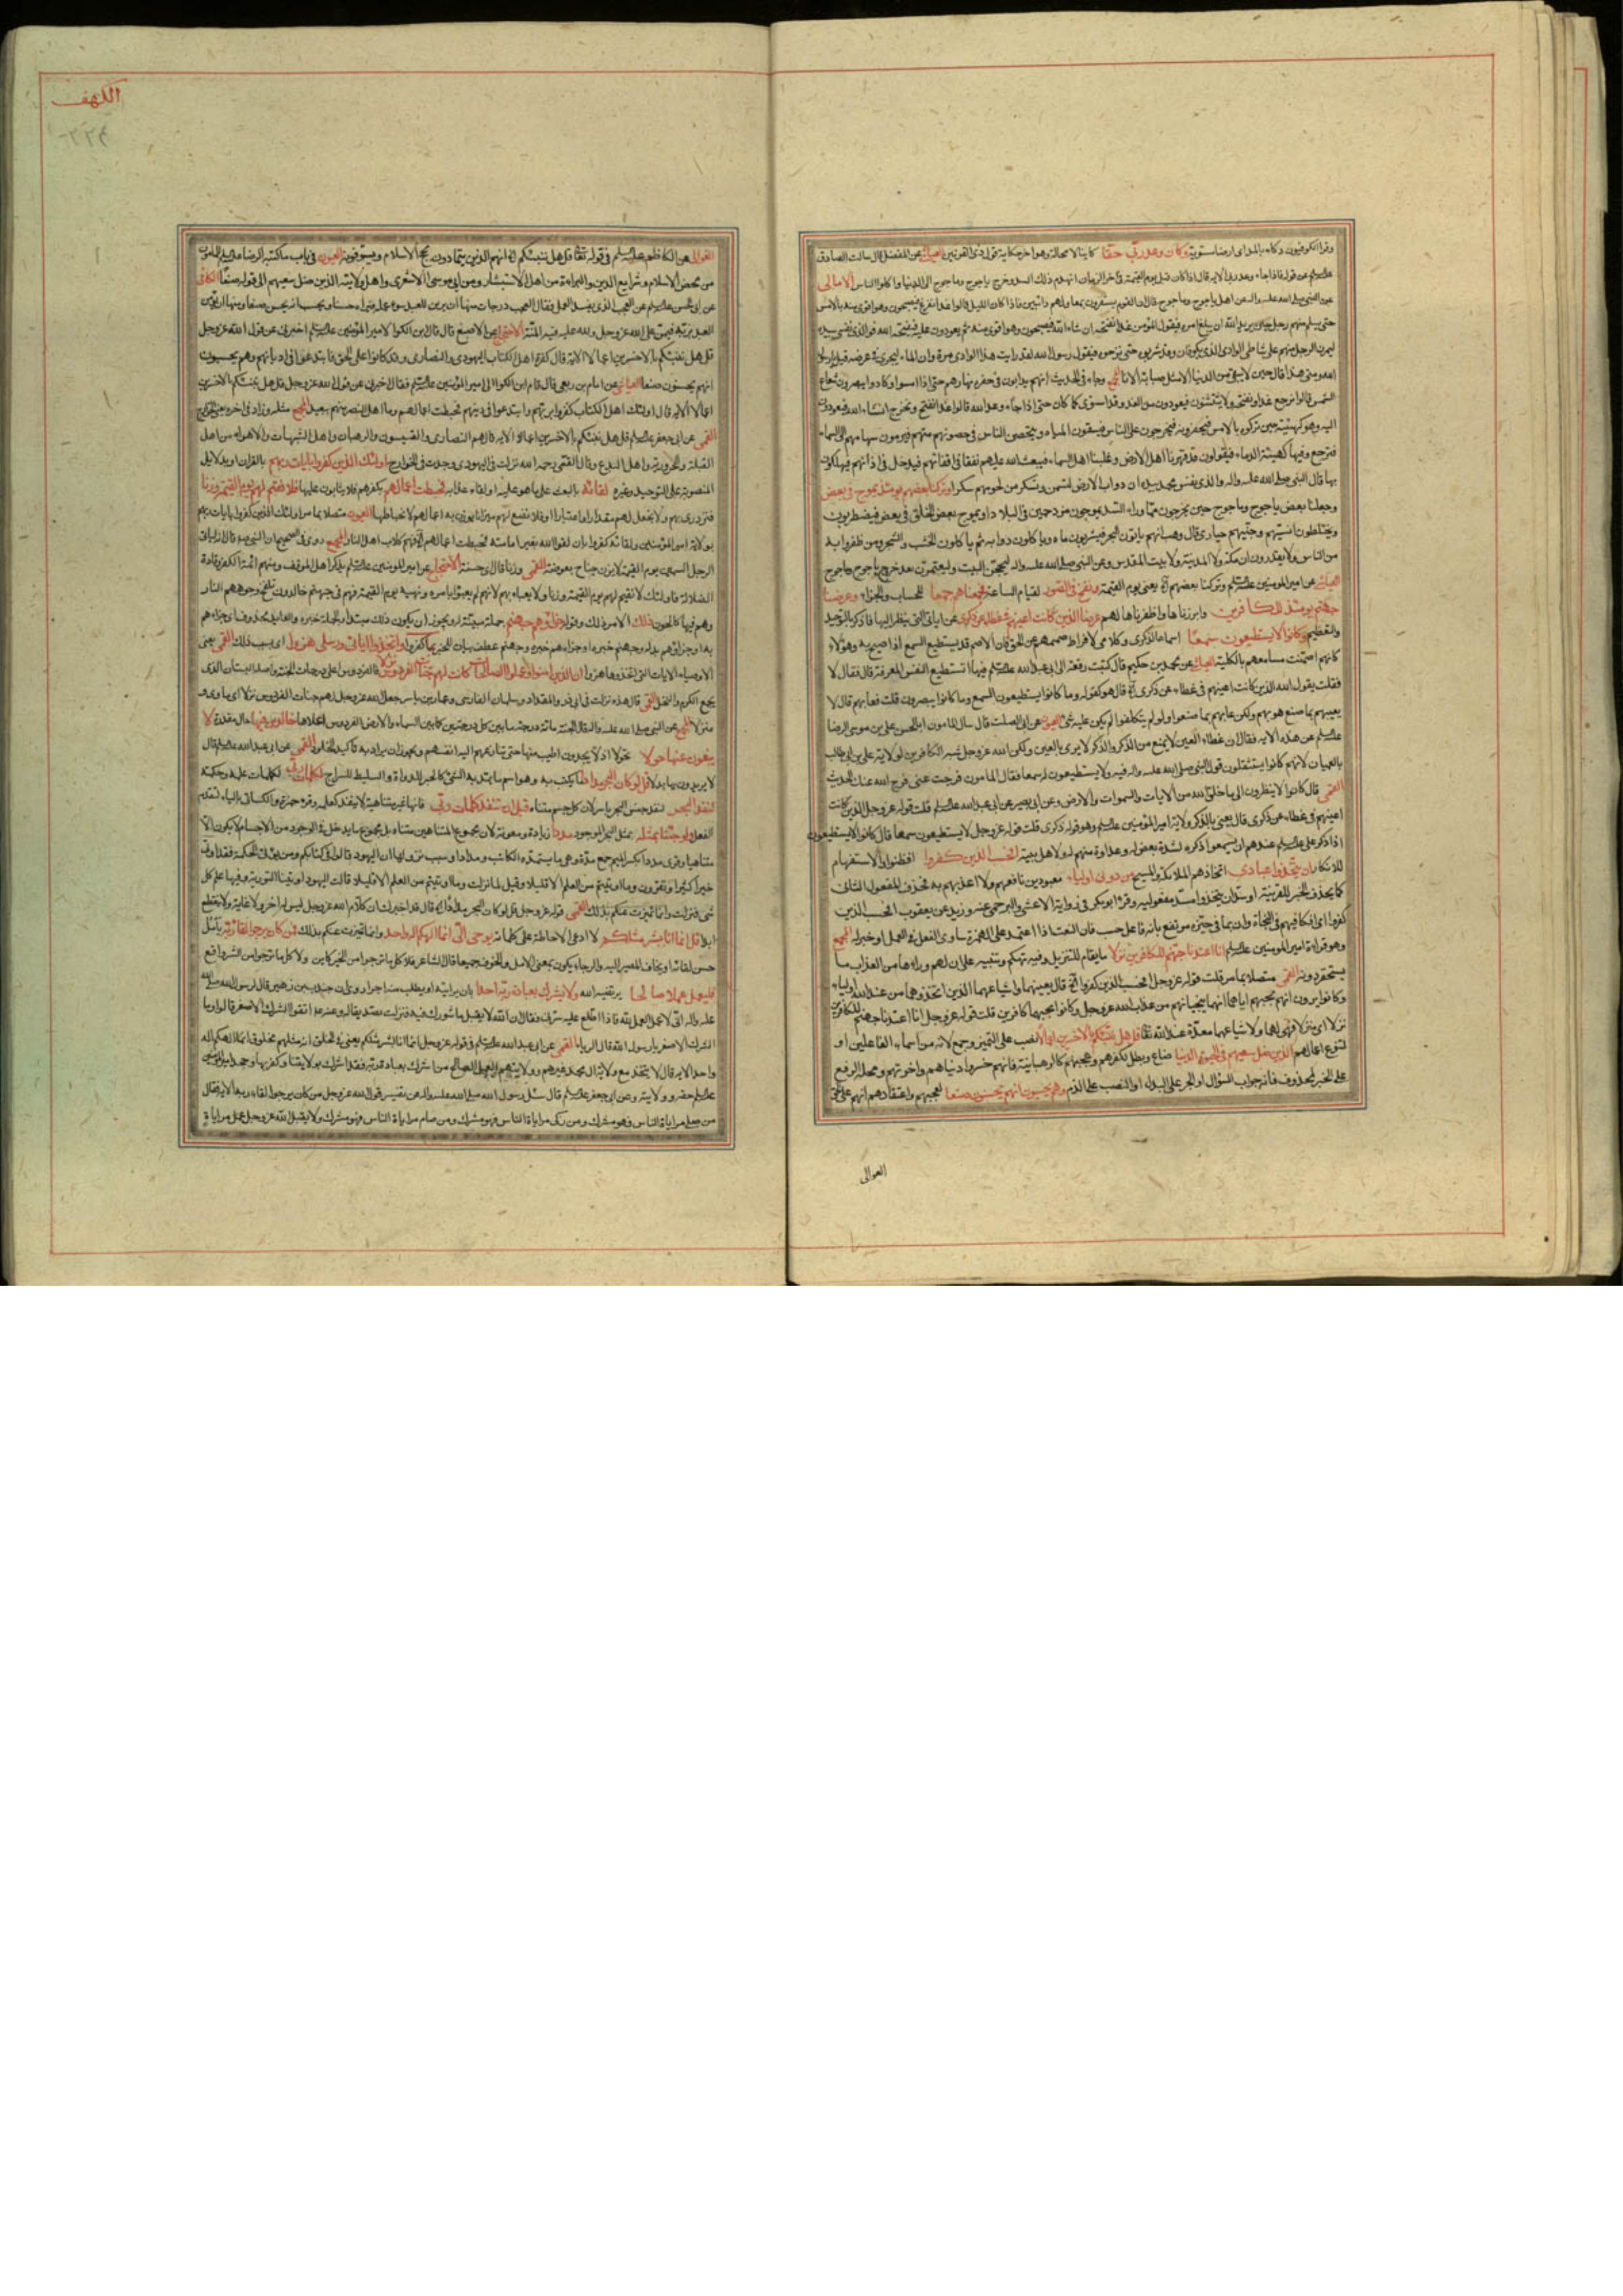 وقرأ الكوفيون دكاء بالمد اى ارضا مستوية وكان وعد ربى حقا كاينا لا محالة وهو اخر حكاية قول ذى القرنين العياشى عن المفضل قال سالت الصادق
عن النبى صلى الله عليه واله عن اهل ياجوج وماجوج قال ان القوم
حتى يسلم منهم رجل حين يريد الله ان يبلغ امره فيقول المؤمن غدا نفتحه ان شاء الله فيصبحون
اليه وهو كهيئته حين تركوه بالامس فيحفرونه فيخرجون على الناس فيسقون المياه ويتحصن الناس فى حصونهم منهم فيرمون سهامهم الى السماء
فترجع وفيها كهيئة الدماء فيقولون قد قهرنا اهل الارض وغلبنا اهل السماء فيبعث الله عليهم نغفا فى اقفائهم فيدخل فى اذانهم فيهلكون
بها قال النبى صلى الله عليه واله والذى نفس محمد بيده ان دواب الارض لتسمن وتسكر من لحومهم سكرا وتركنا بعضهم يومئذ يموج فى بعض
وجعلنا بعض ياجوج وماجوج حين يخرجون مما وراء السد يموجون مزدحمين فى البلاد او يموج بعض الخلق فى بعض فيضطربون
من الناس ولا يقدرون ان مكة ولا المدينة ولا بيت المقدس وعن النبى صلى الله عليه واله ليحجن البيت وليعتمرن بعد خروج ياجوج وماجوج
العياشى عن امير المومنين عليه السلام وتركنا بعضهم الخ يعنى يوم القيمة ونفخ فى الصور لقيام الساعة فجمعناهم جمعا للحساب والجزاء وعرضنا
جهنم يومئذ للكافرين وابرزناها واظهرناها لهم عرضا الذين كانت اعينهم فى غطاء عن ذكرى عن اياتى التى ينظر اليها فاذكر بالتوحيد
والتعظيم وكانوا لا يستطيعون سمعا استماعا لذكرى وكلامى لافراط صممهم عن الحق فان الاصم قد يستطيع السمع اذا صيح به وهؤلاء
كانهم اصمتت مسامعهم بالكلية العياشى عن محمد بن حكيم قال كتبت رقعة الى ابى عبد الله عليه السلام فيها اتستطيع النفس المعرفة قال فقال لا
فقلت يقول الله الذين كانت اعينهم فى غطاء عن ذكرى الخ قال هو كقوله وما كانوا يستطيعون السمع وما كانوا يبصرون قلت فعابهم قال لا
يعيبهم بما صنع هو بهم ولكن عابهم بما صنعوا ولو لم يتكلفوا لم يكن عليهم شئ العيون عن ابى الصلت قال سال المامون ابا الحسن على بن موسى الرضا
عليه السلام عن هذه الاية فقال ان غطاء العين لا يمنع من الذكر والذكر لا يرى بالعين ولكن الله عز وجل شبه الكافرين لولاية على بن ابى طالب
بالعميان لانهم كانوا يستثقلون قول النبى صلى الله عليه واله فيه ولا يستطيعون له سمعا فقال المامون فرجت عنى فرج الله عنك الحديث
القمى قال كانوا لا ينظرون الى ما خلق الله من الايات والسموات والارض وعن ابى بصير عن ابى عبد الله عليه السلام قلت قوله عز وجل الذين كانت
اعينهم فى غطاء عن ذكرى قال يعنى بالذكر ولاية امير المؤمنين عليه السلام وهو قوله ذكرى قلت قوله عز وجل لا يستطيعون سمعا قال كانوا لا يستطيعون
اذا ذكر على عليه السلام عندهم ان يسمعوا ذكره لشدة بغض له وعداوة منهم له ولاهل بيته الحسب الذين كفروا افظنوا والاستفهام
للانكار ان يتخذوا عبادى اتخاذهم الملائكة والمسيح من دونى اولياء معبودين نافعهم ولا اعذبهم به فحذف المفعول الثانى
كما يحذف الخبر للقرينة او سد ان يتخذوا مسد مفعوليه وقرأ ابو بكر فى رواية الاعشى والبرجمى عنه وزيد عن يعقوب الحسب الذين
كفروا اى افكافيهم فى النجاة وان بما فى حيزه مرتفع بانه فاعل حسب فان النعت اذا اعتمد على الهمزة ساوى الفعل فى العمل او خبر له المجمع
وهو قراءة امير المومنين عليه السلام انا اعتدنا جهنم للكافرين نزلا ما يقام للنزيل وفيه تهكم وتنبيه على ان لهم وراءها من العذاب ما
يستحقر دونه القمى متصلا بما مر قلت قوله عز وجل الحسب الذين كفروا الخ قال يعنيهما واشياعهما الذين اتخذوهما من عند الله اولياء
وكانوا يرون انهم بحبهم اياهما انهما ينجيانهم من عذاب الله عز وجل وكانوا بحبهما كافرين قلت قوله عز وجل انا اعتدنا جهنم للكافرين
نزلا اى منزلا فهى لهما ولاشياعهما معدة عند الله تعالى قل هل ننبئكم بالاخسرين اعمالا نصب على التميز وجمع لانه من اسماء الفاعلين او
لتنوع اعمالهم الذين ضل سعيهم فى الحيوة الدنيا ضاع وبطل بكفرهم وعجبهم كالرهبانية فانهم خسروا دنياهم واخرتهم ومحله الرفع
على الخبر لمحذوف فانه جواب السؤال او الجر على البدل او النصب على الذم وهم يحسبون انهم يحسنون صنعا لعجبهم واعتقادهم انهم على الحق
العوالى
الكهف
٢٢٤
العوالى عن الكاظم عليه السلام فى قوله تعالى قل هل ننبئكم الخ انهم الذين يتمادون بحج الاسلام ويسوفونه العيون فى باب ما كتبه الرضا عليه السلام للمامون
من محض الاسلام وشرايع الدين والبراءة من اهل الاستيثار ومن ابى موسى الاشعرى واهل ولايته الذين ضل سعيهم الى قوله صنعا الكافى
عن ابى الحسن عليه السلام عن العجب الذى يفسد العمل فقال العجب درجات منها ان يزين للعبد سوء عمله فيراه حسنا ويحسب انه يحسن صنعا ومنها ان يؤمن
العبد بربه فيمن على الله عز وجل ولله عليه فيه المنة الاحتجاج عن الاصبغ قال قال ابن الكوا لامير المؤمنين عليه السلام اخبرنى عن قول الله عز وجل
قل هل ننبئكم بالاخسرين اعمالا الاية قال كفرة اهل الكتاب اليهود والنصارى وقد كانوا على الحق فابتدعوا فى اديانهم وهم يحسبون
انهم يحسنون صنعا العياشى عن امام بن ربعى قال قام ابن الكوا الى امير المؤمنين عليه السلام فقال اخبرنى عن قول الله عز وجل قل هل ننبئكم بالاخسرين
اعمالا الاية قال اولئك اهل الكتاب كفروا بربهم وابتدعوا فى دينهم فحبطت اعمالهم وما اهل النهر منهم ببعيد المجمع مثله وزاد فى اخره يعنى الخوارج
القمى عن ابى جعفر عليه السلام قل هل ننبئكم بالاخسرين اعمالا الاية قال هم النصارى والقسيسون والرهبان واهل الشبهات والاهواء من اهل
القبلة والحرورية واهل البدع وقال القمى رحمه الله نزلت فى اليهود وجرت فى الخوارج اولئك الذين كفروا بايات ربهم بالقران او بدلايل
المنصوبة على التوحيد وغيره لقائه بالبعث على ما هو عليه او لقاء عذابه فحبطت اعمالهم بكفرهم فلا يثابون عليها فلا نقيم لهم يوم القيمة وزنا
فنزدرى بهم ولا نجعل لهم مقدارا واعتبارا او فلا نضع لهم ميزانا يوزن به اعمالهم لانحباطها العيون متصلا بما مر اولئك الذين كفروا بايات ربهم
بولاية امير المؤمنين ولقائه كفروا بان لقوا الله بغير امامته فحبطت اعمالهم الخ فهم كلاب اهل النار المجمع روى فى الصحيح ان النبى ص قال انه لياتى
الرجل السمين يوم القيمة لا يزن جناح بعوضة القمى وزنا قال اى حسنة الاحتجاج عن امير المومنين عليه السلام يذكر اهل الموقف ومنهم ائمة الكفر وقادة
الضلالة فاولئك لا نقيم لهم يوم القيمة وزنا ولا يعبأ بهم لانهم لم يعبؤا بامره ونهيه يوم القيمة فهم فى جهنم خالدون تلفح وجوههم النار
وهم فيها كالحون ذلك الامر ذلك وقوله جزاؤهم جهنم جملة مبينة له ويجوز ان يكون ذلك مبتدا والجملة خبره والعايد محذوف اى جزاءهم
به او جزاؤهم بدله وجهنم خبره او جزاءهم خبره وجهنم عطف بيان للخبر بما كفروا واتخذوا اياتى ورسلى هزوا اى بسبب ذلك القمى يعنى
الاوصياء الايات التى اتخذوها هزوا ان الذين امنوا وعملوا الصالحات كانت لهم جنات الفردوس نزلا فالفردوس اعلى درجات الجنة واصله البستان الذى
يجمع الكرم والنخل القمى قال هذه نزلت فى ابى ذر والمقداد وسلمان الفارسى وعمار بن ياسر جعل الله عز وجل لهم جنات الفردوس نزلا اى ماوى و
منزلا المجمع عن النبى صلى الله عليه واله قال الجنة مائة درجة ما بين كل درجتين كما بين السماء والارض الفردوس اعلاها خالدين فيها حال مقدرة لا
يبغون عنها حولا تحولا اذ لا يجدون اطيب منها حتى تنازعهم اليه انفسهم ويجوز ان يراد به تاكيد الخلود القمى عن ابى عبد الله عليه السلام قال
لا يريدون بها بدلا قل لو كان البحر مدادا ما يكتب به وهو اسم ما يمد به الشئ كالحبر للدواة والسليط للسراج لكلمات ربى لكلمات علمه وحكمته
لنفد البحر لنفد جنس البحر باسره لان كل جسم متناه قبل ان تنفد كلمات ربى فانها غير متناهية لا ينفد كعلمه وقرء حمزة والكسائى بالياء لتقدم
الفعل ولو جئنا بمثله بمثل البحر الموجود مددا زيادة ومعونة لان مجموع المتناهين متناه بل مجموع ما يدخل فى الوجود من الاجسام لا يكون الا
متناهيا وقرى مددا بكسر الميم جمع مدة وهى ما يستمده الكاتب ومدادا وسبب نزولها ان اليهود قالوا فى كتابكم ومن يؤت الحكمة فقد اوتى
خيرا كثيرا وتقرون وما اوتيتم من العلم الا قليلا وقيل لما نزلت وما اوتيتم من العلم الا قليلا قالت اليهود اوتينا التورية وفيها علم كل
شئ فنزلت القمى قوله عز وجل قل لو كان البحر مدادا الخ قال قد اخبرك ان كلام الله عز وجل ليس له اخر ولا غاية ولا ينقطع
ابدا قل انما انا بشر مثلكم لا ادعى الاحاطة على كلماته يوحى الى انما الهكم اله واحد وانما تميزت عنكم بذلك فمن كان يرجو لقاء ربه يامل
حسن لقائه او يخاف المصير اليه والرجاء يكون بمعنى الامل والخوف جميعا قال الشاعر فلا كل ما ترجو من الخير كاين ولا كل ما ترجو من الشر واقع
فليعمل عملا صالحا يرتضيه الله ولا يشرك بعبادة ربه احدا بان يرائيه او يطلب منه اجرا روى ان جندب بن زهير قال لرسول الله صلى الله
عليه واله انى لاعمل العمل لله فاذا اطلع عليه سرنى فقال ان الله لا يقبل ما شورك فيه فنزلت تصديقا له وعنه ع م اتقوا الشرك الاصغر قالوا وما
الشرك الاصغر يا رسول الله قال الريا القمى عن ابى عبد الله عليه السلام فى قوله عز وجل انما انا بشر مثلكم يعنى فى الخلق انه مثلهم مخلوق انما الهكم اله
واحد الاية قال لا يتخذ مع ولاية ال محمد غيرهم وولايتهم العمل الصالح من اشرك بعبادة ربه فقد اشرك بولايتنا وكفر بها وجحد امير المؤمنين
عليه السلام حقه وولايته وعن ابى جعفر عليه السلام قال سئل رسول الله صلى الله عليه واله عن تفسير قول الله عز وجل من كان يرجو لقاء ربه الاية فقال
من صلى مراياة الناس فهو مشرك ومن زكى مراياة الناس فهو مشرك ومن صام مراياة الناس فهو مشرك ولا يقبل الله عز وجل عمل مراياة